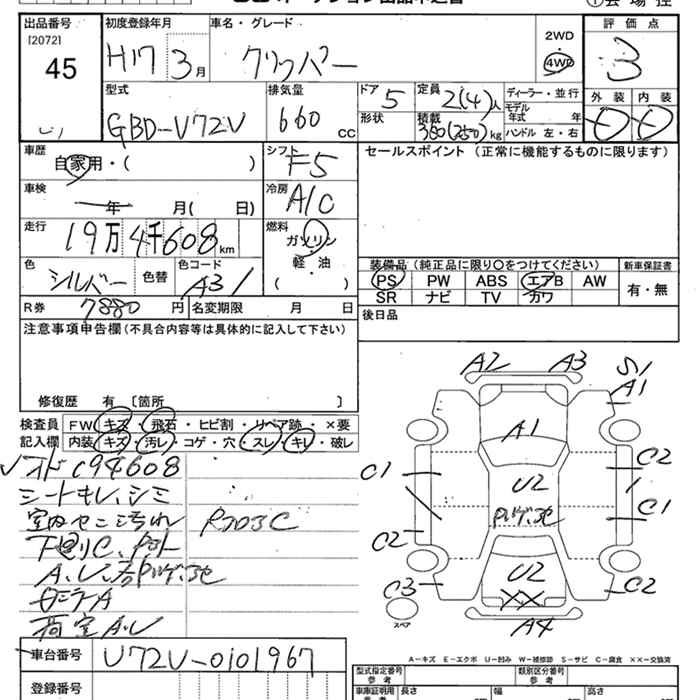 オークション出品申込書
①会場控
出品番号 初度登録年月 車名・グレード 2WD 評価点
[2072]
45 H17 3月 クリッパー 4WD 3
型式 排気量 ドア 定員 ディーラー・並行 外装 内装
GBD-V72V 660cc 5 2(4)人 モデル年式 年
形状 積載 350(250)kg ハンドル 左・右
車歴 自家用・( ) シフト F5 セールスポイント(正常に機能するものに限ります)
車検 年 月( 日) 冷房 A/C
走行 19万4千608km 燃料 ガソリン 軽・油 ( )
色 シルバー 色替 色コード A31
装備品(純正品に限り○をつけてください) 新車保証書
PS PW ABS エアB AW 有・無
SR ナビ TV カワ
R券 7880円 名変期限 月 日 後日品
注意事項申告欄(不具合内容等は具体的に記入して下さい)
修復歴 有〔箇所 〕
検査員 FW キズ・飛石・ヒビ割・リペア跡・×要
記入欄 内装 キズ・汚レ・コゲ・穴・スレ・キレ・破レ
シートキレ、シミ
A2 A3 S1
A1
A1
C1 C2
U2
C1
C2
U2
C3 C2
XX
スペア A4
A-キズ E-エクボ U-凹み W-補修跡 S-サビ C-腐食 XX-交換済
車台番号 U72V-0101967
登録番号
型式指定番号 参考 類別区分番号 参考
車庫証明用 参考 長さ 幅 高さ